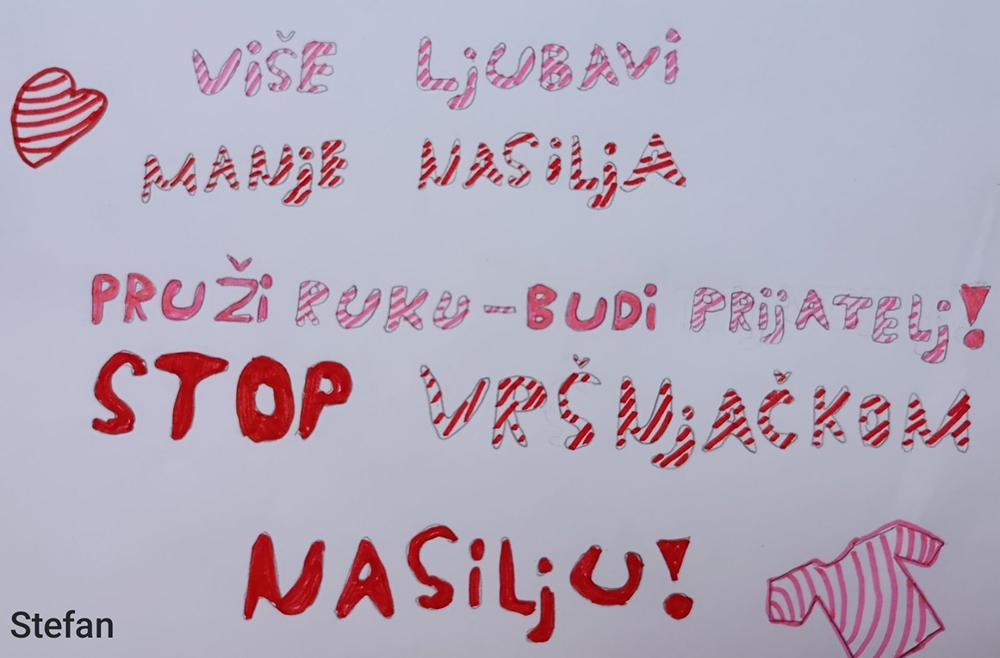 VIŠE LJUBAVI
MANJE NASILJA
PRUŽI RUKU-BUDI PRIJATELJ!
STOP VRŠNJAČKOM
NASILJU!
Stefan